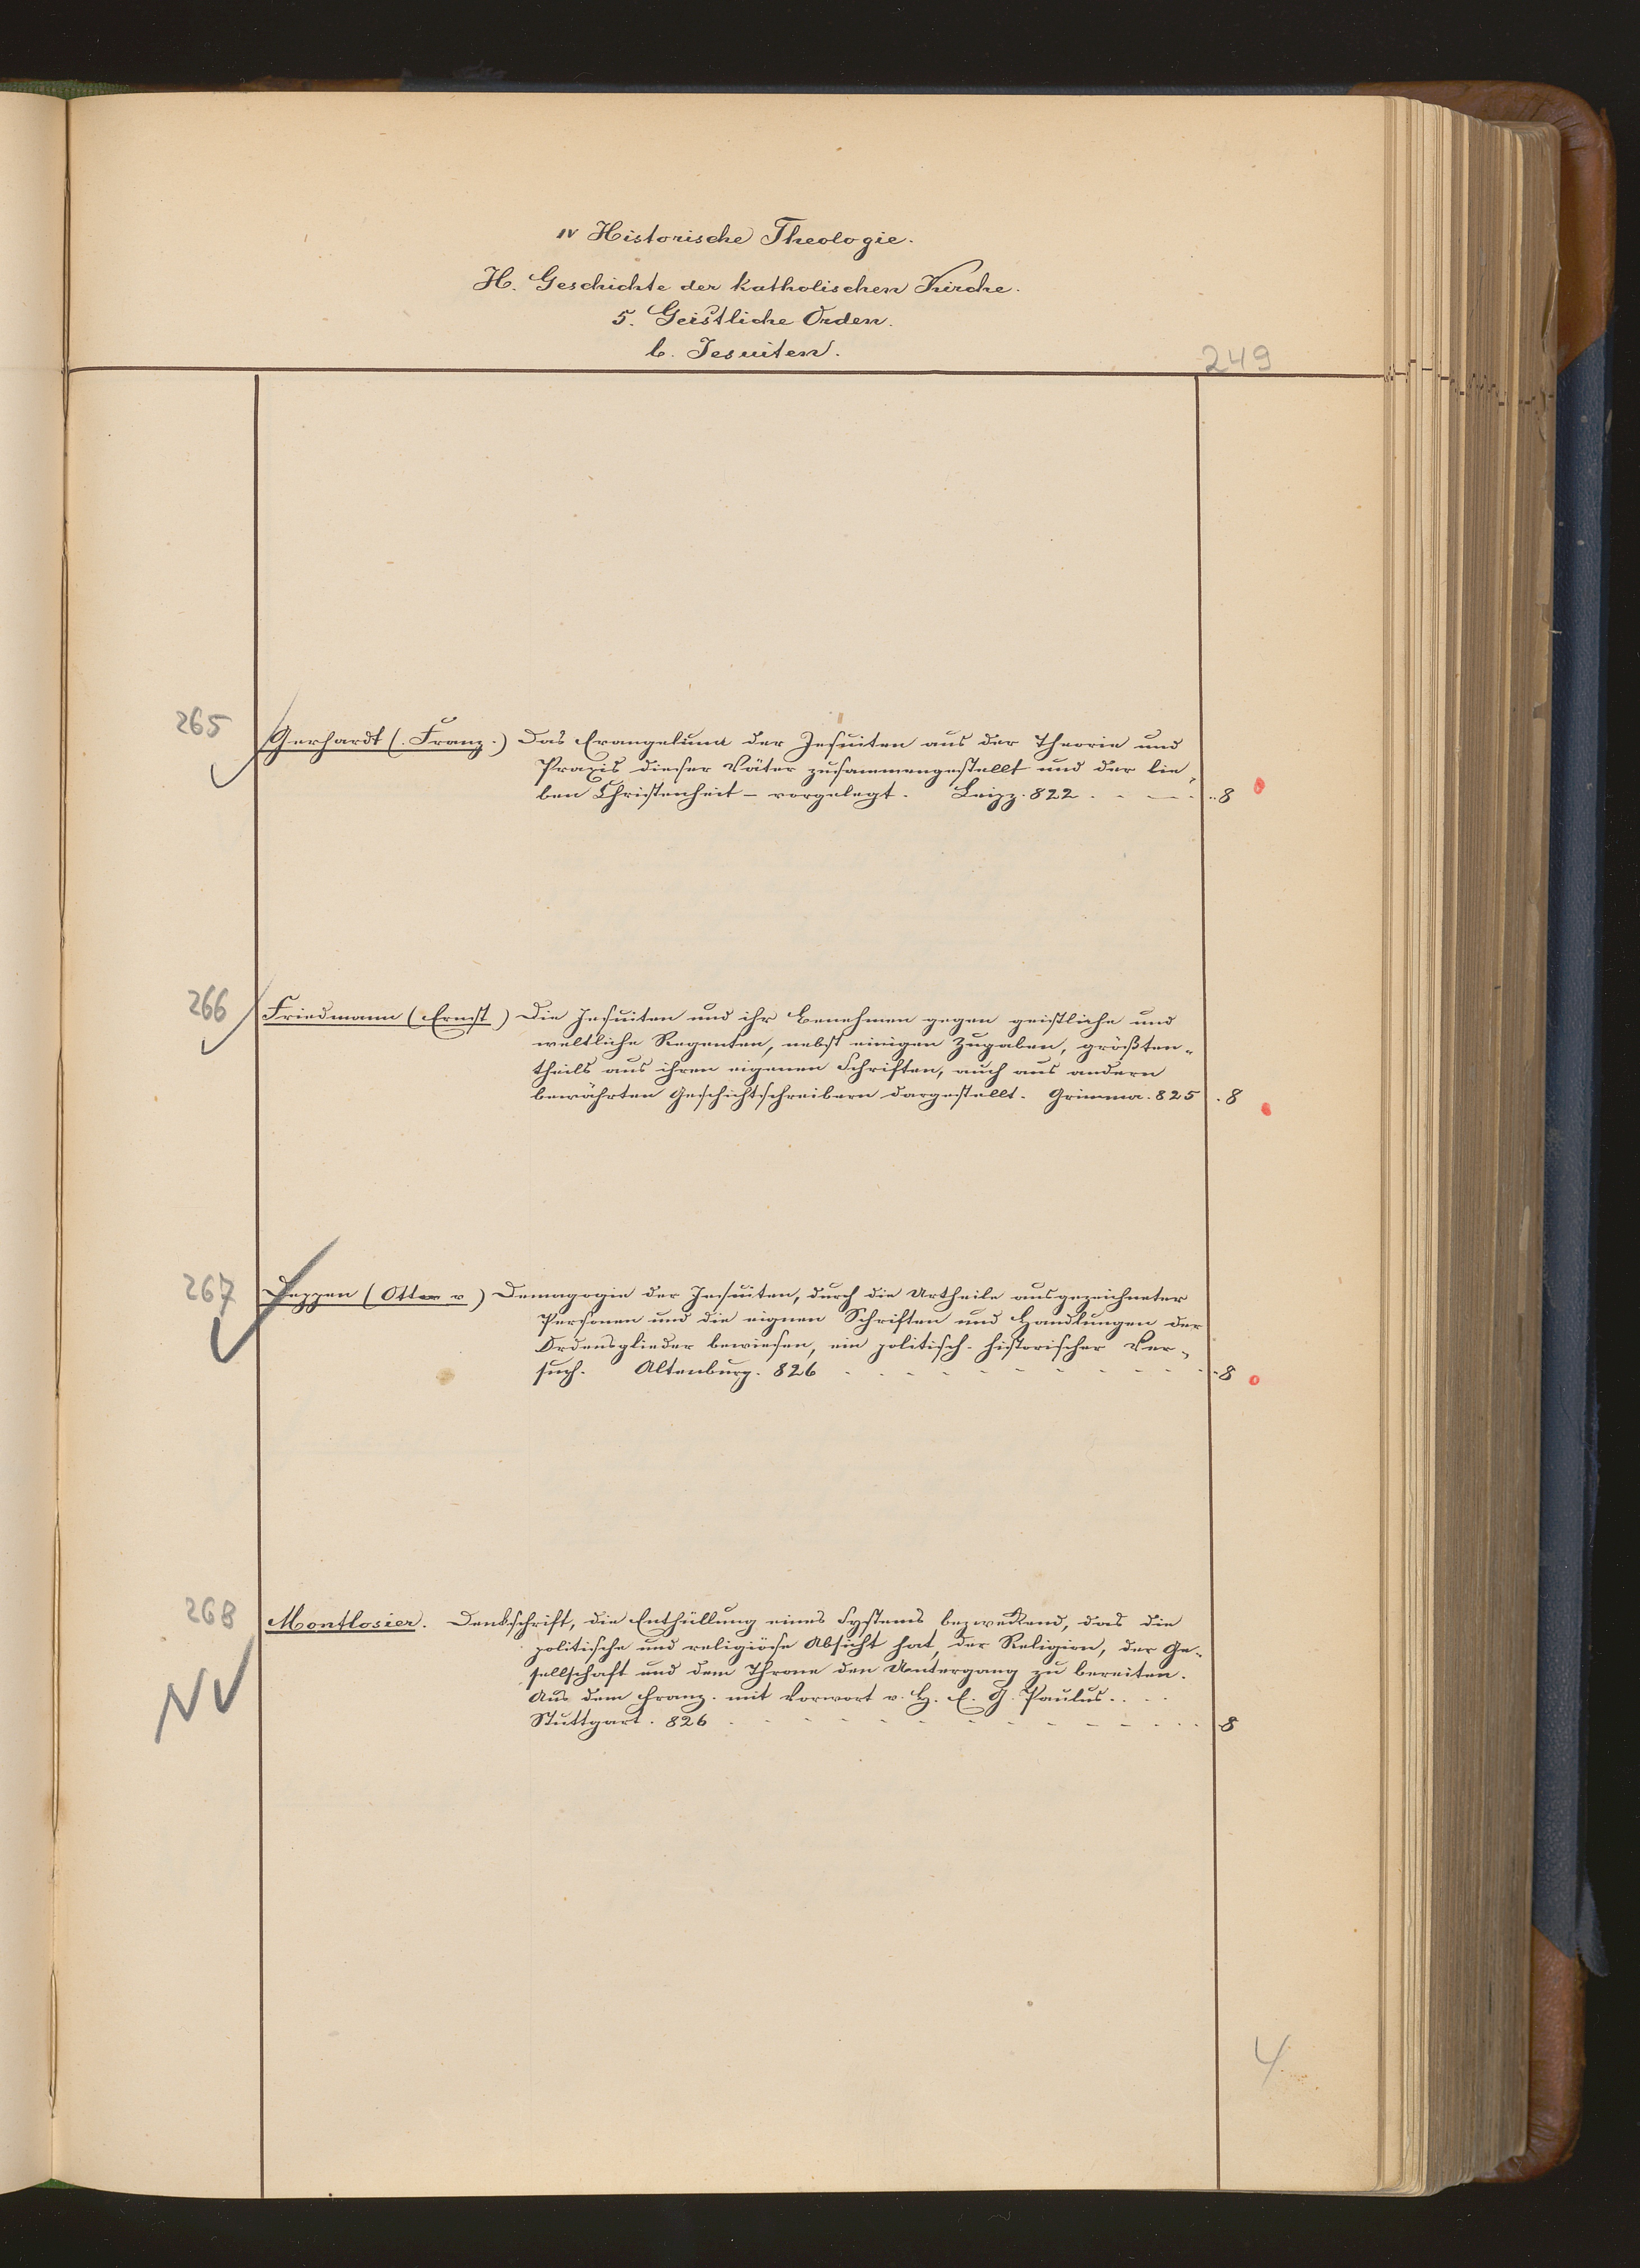 IV Historische Theologie.
H. Geschichte der katholischen Kirche.
5. Geistliche Orden.
b. Jesuiten.
249
265
Gerhardt (Franz.) Das Evangelium der Jesuiten aus der Theorie und
Praxis dieser Väter zusammengestellt und der lie-
ben Christenheit – vorgelegt. Leipz. 822 . - — - . . 8
266
Friedmann (Ernst) Die Jesuiten und ihr Benehmen gegen geistliche und
weltliche Regenten, nebst einigen Zugaben, größten-
theils aus ihren eigenen Schriften, auch aus andern
bewährten Geschichtschreibern dargestellt. Grimma. 825 . 8
267
Deppen (Otto v) Demagogie der Jesuiten, durch die Urtheile ausgezeichneter
Personen und die eignen Schriften und Handlungen der
Ordensglieder bewiesen, ein politisch-historischer Ver-
such. Altenburg. 826 . . . - - - - - - - - . 8
268
Montlosier. Denkschrift, die Enthüllung eines Systems bezweckend, das die
politische und religiöse Absicht hat, der Religion, der Ge-
sellschaft und dem Throne den Untergang zu bereiten.
NV
Aus dem Franz. mit Vorwort v. H. E. G. Paulus. . . .
Stuttgart. 826 . - - - - - - - - - - . . 8
4